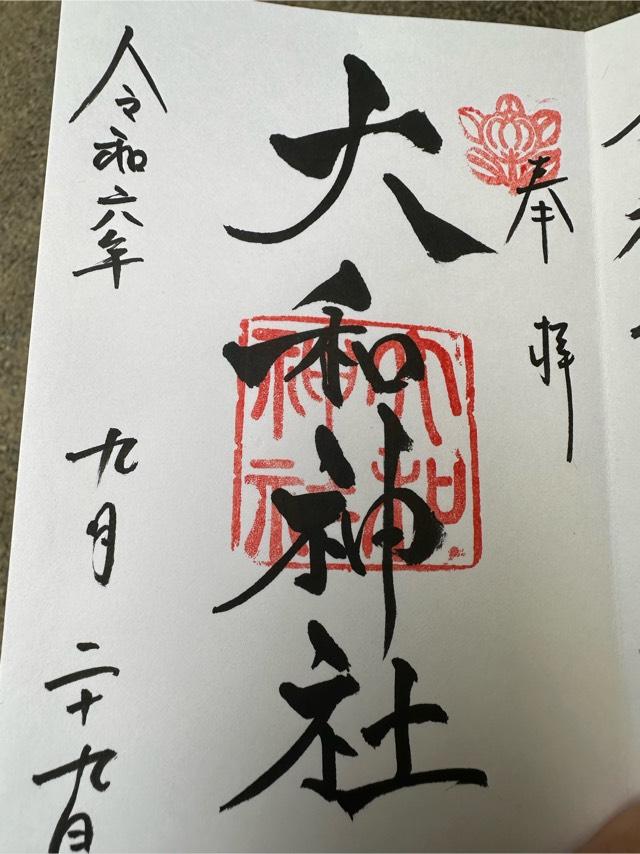 奉拝
大和神社
大和神社
令和六年 九月 二十九日